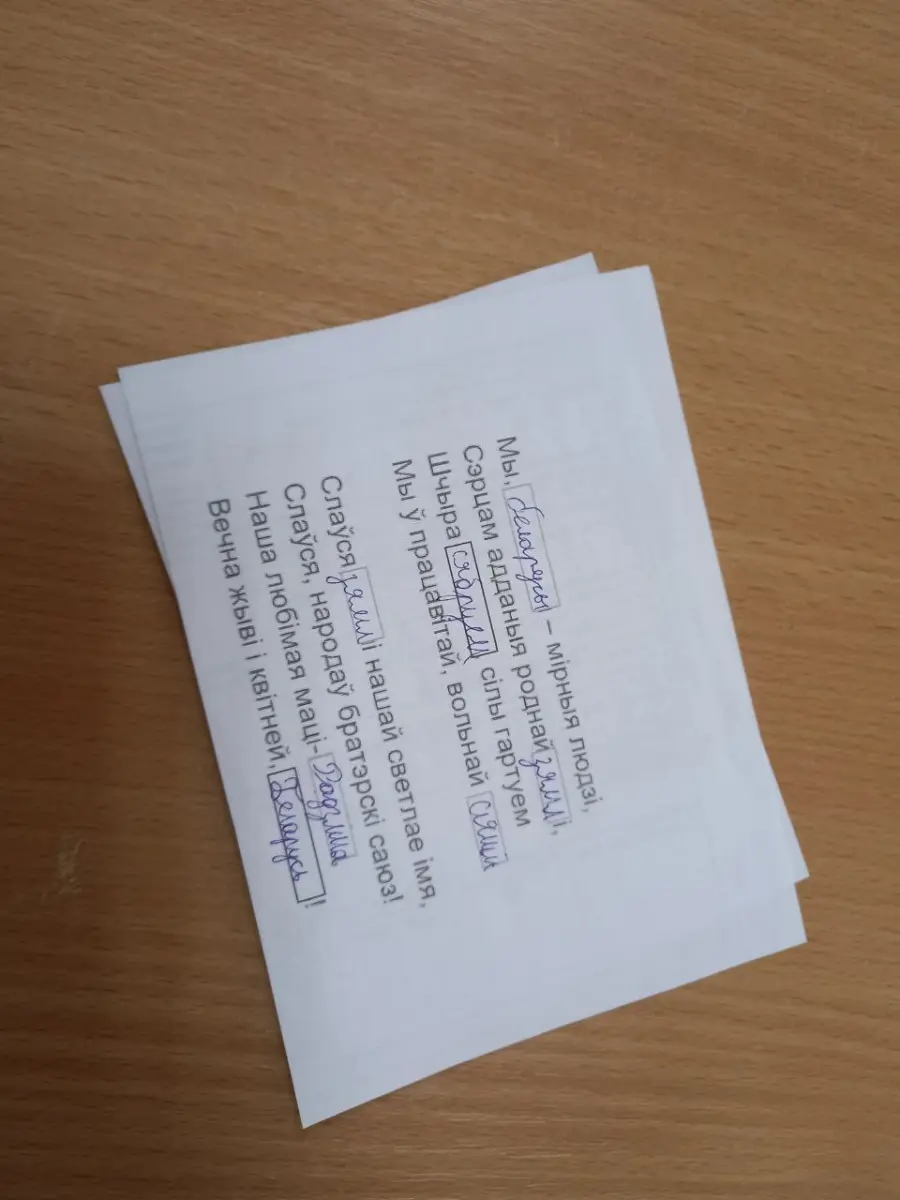 Мы, беларусы – мірныя людзі,
Сэрцам адданыя роднай зямлі,
Шчыра сябруем сілы гартуем
Мы ў працавітай, вольнай сям'і
Слаўся зямлі нашай светлае імя,
Слаўся, народаў братэрскі саюз!
Наша любімая маці-Радзіма
Вечна жыві і квітней, Беларусь!